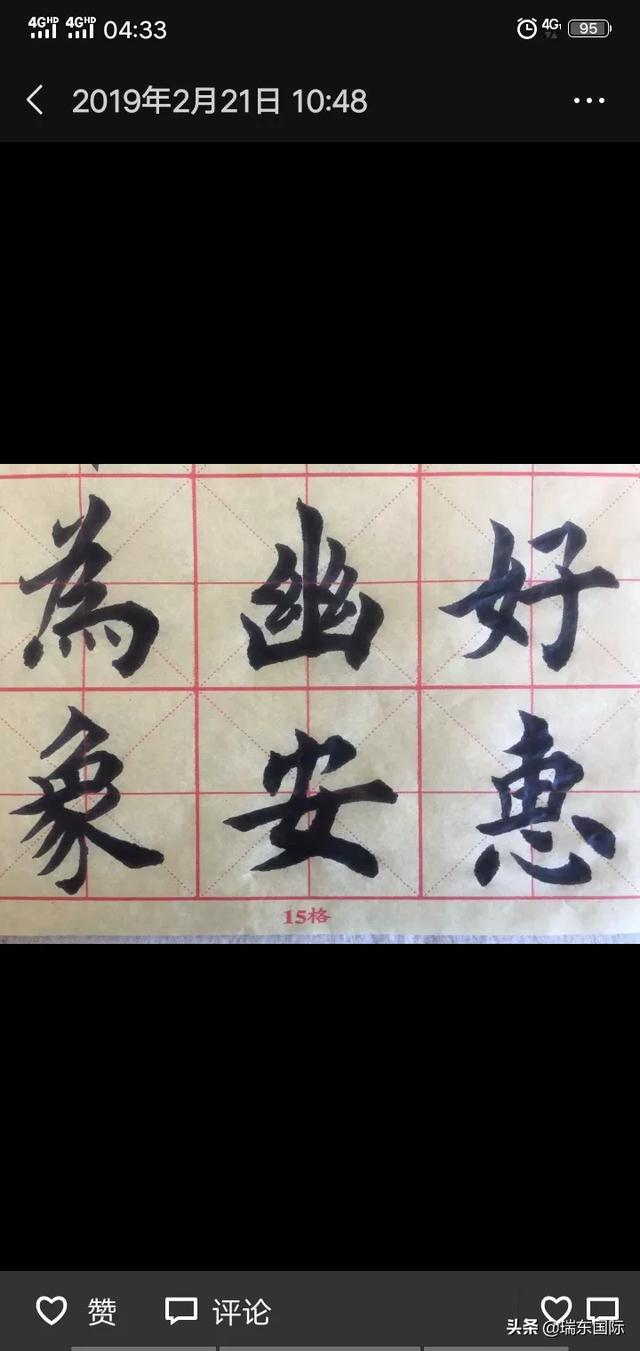 4G HD 4G HD 04:33 4G 95
2019年2月21日 10:48
好惠
幽安
為象
15格
赞 评论
头条 @瑞东国际